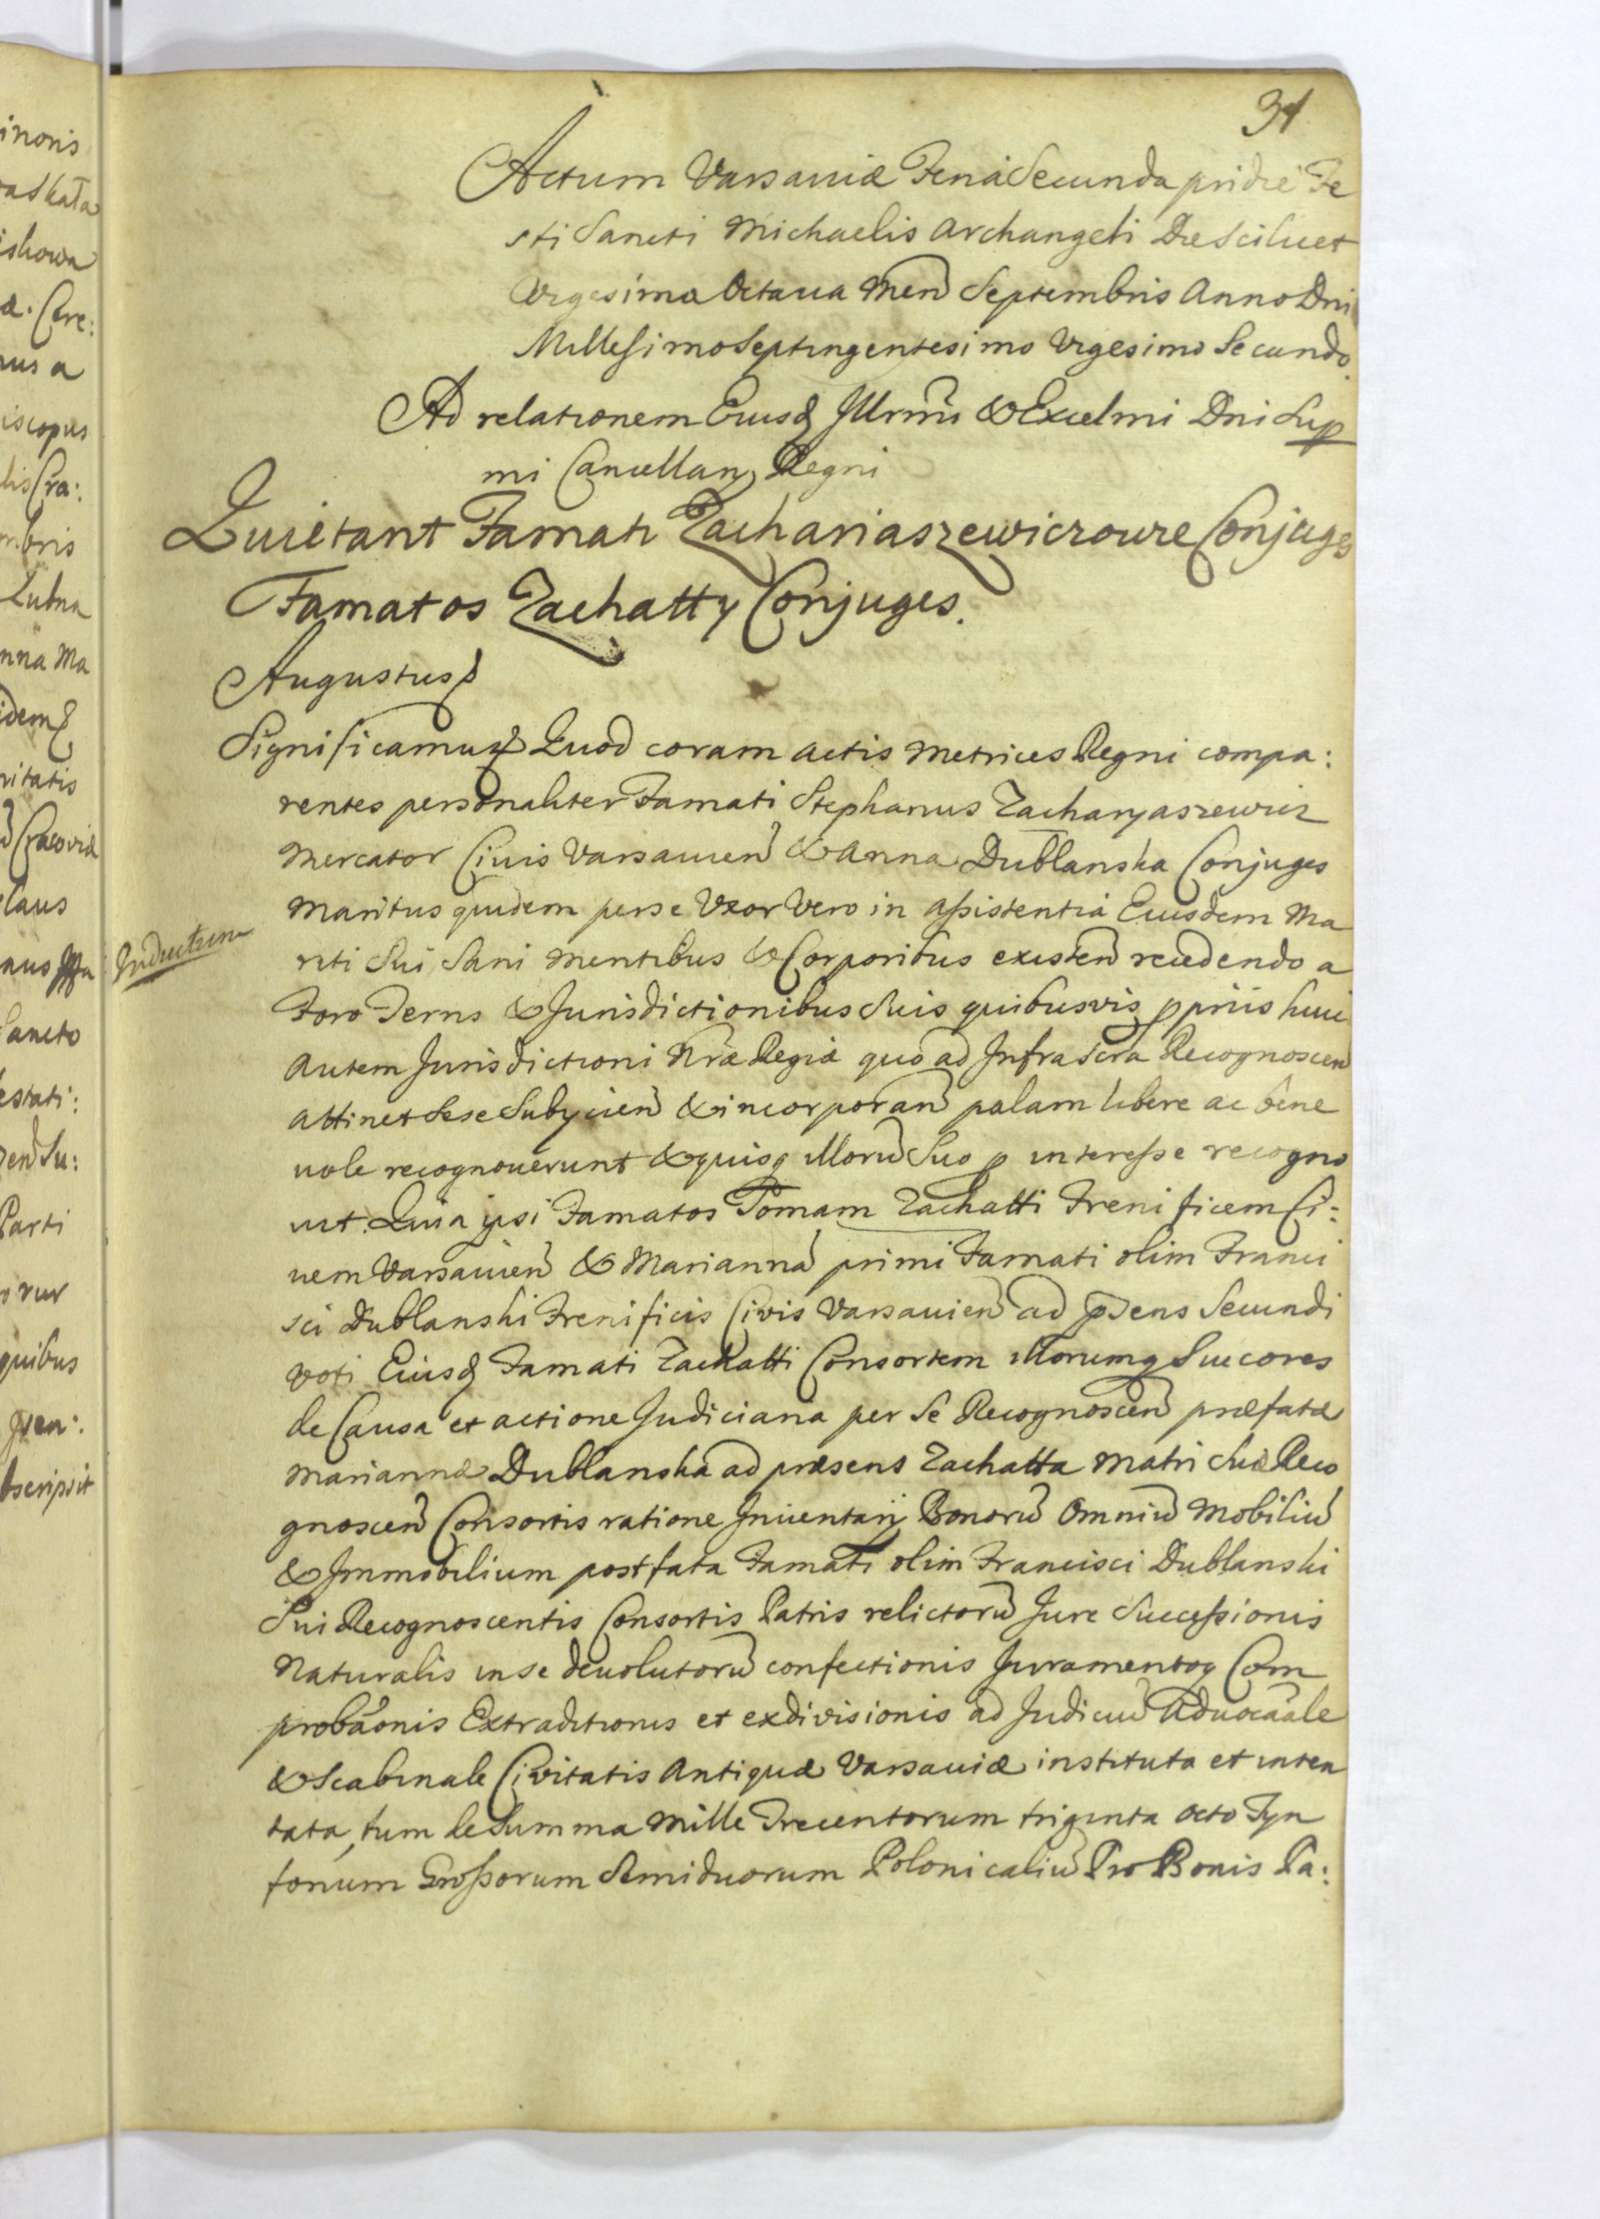 inoris
31
Actum Varsaviæ Feria Secunda pridie Fe
sti Sancti Michaelis Archangeli Die Scilicet
Vigesima Octava Men Septembris Anno Dni
Millesimo Septingentesimo Vigesimo Secundo
Ad relationem Eiusd Illrmi & Excelmi Dni Sup
mi Cancellarij Regni
Quietant Famati Zachariaszewiczowie Conjuges
Famatos Zachatty Conjuges.
Augustus
Significamus Quod coram Actis Metrices Regni compa:
rentes personaliter Famati Stephanus Zacharyaszewicz
Mercator Civis Varsavien & Anna Dublanska Conjuges
Maritus quidem per se Uxor Vero in Assistentia Eiusdem Ma
riti Sui Sani Mentibus & Corporibus existen recedendo a
Inductum
Foro Terris & Jurisdictionibus Suis quibusvis ppriis huic
Autem Jurisdictioni Nræ Regiæ quo ad Infra Scra Recognoscen
Attinet Sese Subjicien & incorporan palam libere ac bene
vole recognoverunt & quisq illorũ Suo p interesse recogno
vit. Quia ipsi Famatos Tomam Zachatti Frenificem Ci:
vem Varsavien & Mariannã primi Famati olim Franci
sci Dublanski Frenificis Civis Varsavien ad psens Secundi
voti Eiusd Famati Zachatti Consortem illorumq Succores
de Causa et actione Judiciaria per Se Recognoscen præfatæ
Mariannæ Dublanska ad præsens Zachatta Matri Suæ Reco
gnoscen Consortis ratione Inventarij Bonorũ Omniũ Mobiliũ
& Immobilium post fata Famati olim Francisci Dublanski
Sui Recognoscentis Consortis Patris relictorũ Jure Successionis
Naturalis in se devolutorũ confectionis Juramentoq Com
probãonis Extraditionis et exdivisionis ad Judiciũ Advocãale
& Scabinale Civitatis Antiquæ Varsaviæ instituta et inten
tata, tum de Summa Mille Trecentorum triginta Octo Tyn
forum Grossorum Semiduorum Polonicaliũ Pro Bonis Pa: